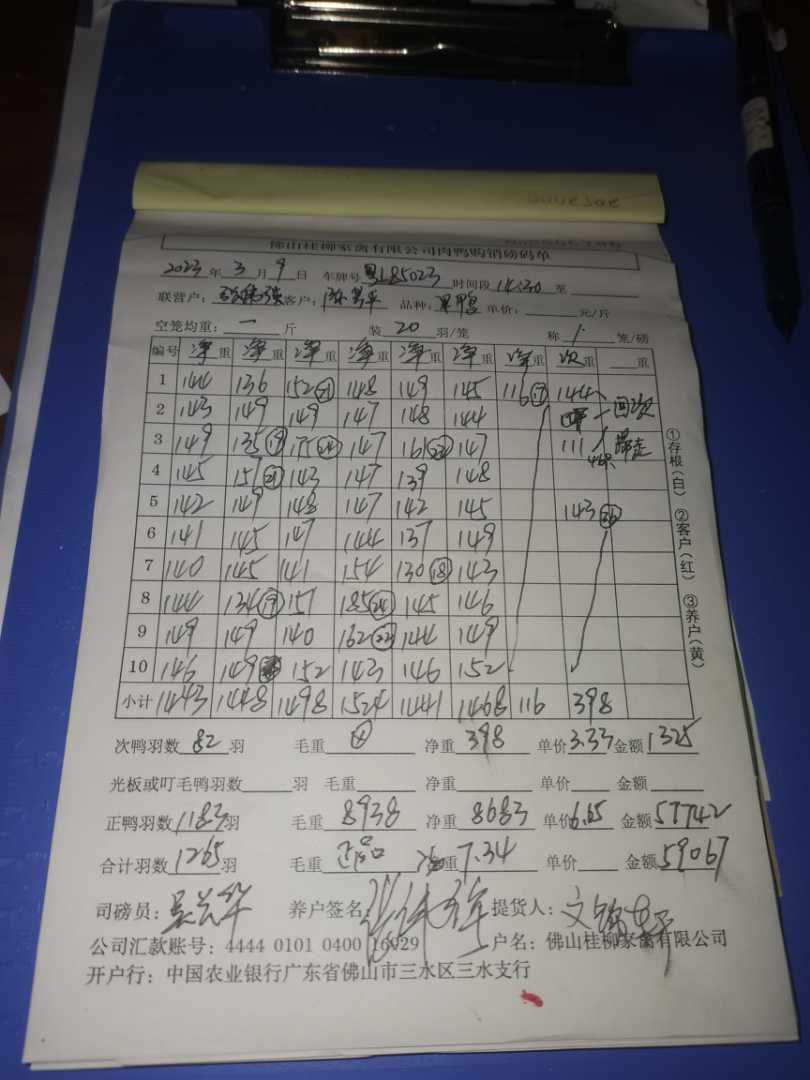 佛山桂柳家禽有限公司肉鸭购销磅码单
2023年3月9日 车牌号粤L85023 时间段14:30至
联营户: 客户: 品种: 单价: 元/斤
空笼均重:一斤 装20羽/笼 称1笼/磅
编号 净重 净重 净重 净重 净重 净重 净重 次重 重
1 144 136 152(21) 148 149 145 116(17) 144
2 143 149 149 147 148 144 回次
3 149 135(19) 175(24) 147 161(22) 147 111 带走
4 145 157(21) 143 147 139 148
5 142 149 148 147 142 145 143(36)
6 141 145 147 144 137 149
7 140 145 141 154 130(18) 143
8 144 134(19) 157 185(24) 145 146
9 149 149 140 162(22) 144 149
10 146 149 152 143 146 152
小计 1443 1448 1498 1524 1441 1468 116 398
①存根(白) ②客户(红) ③养户(黄)
次鸭羽数82羽 毛重 净重398 单价3.33 金额1325
光板或叮毛鸭羽数 羽 毛重 净重 单价 金额
正鸭羽数1183羽 毛重8938 净重8683 单价6.65 金额57742
合计羽数1265羽 毛重 重7.34 单价 金额59067
司磅员: 养户签名: 提货人:
公司汇款账号:4444 0101 0400 16929 户名:佛山桂柳家禽有限公司
开户行:中国农业银行广东省佛山市三水区三水支行